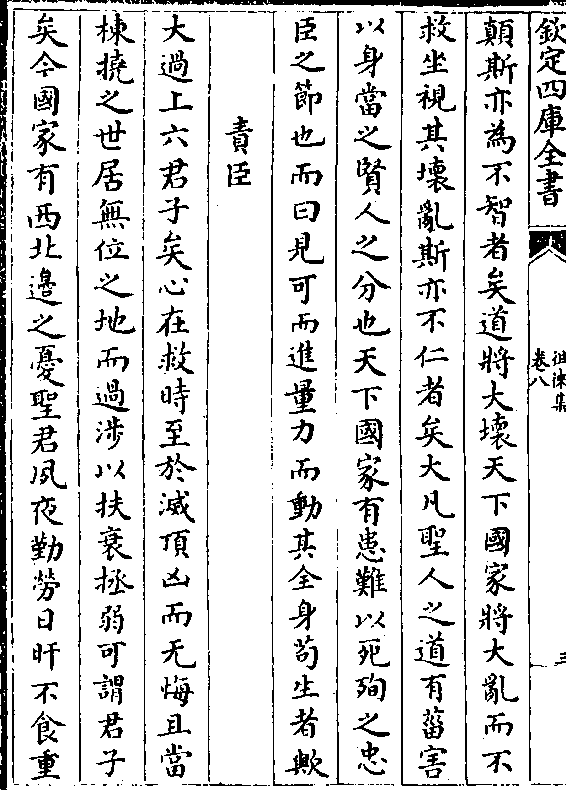 欽定四庫全書
徂徠集
卷八
三
顛斯亦為不智者矣道將大壞天下國家將大亂而不
救坐視其壞亂斯亦不仁者矣大凡聖人之道有菑害
以身當之賢人之分也天下國家有患難以死殉之忠
臣之節也而曰見可而進量力而動其全身苟生者歟
責臣
大過上六君子矣心在救時至於滅頂凶而无悔且當
棟撓之世居無位之地而過涉以扶衰拯弱可謂君子
矣今國家有西北邉之憂聖君夙夜勤勞日旰不食重